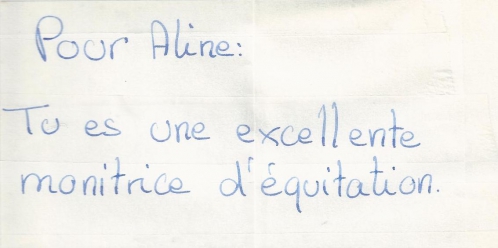 Pour Aline:
Tu es une excellente
monitrice d'équitation.